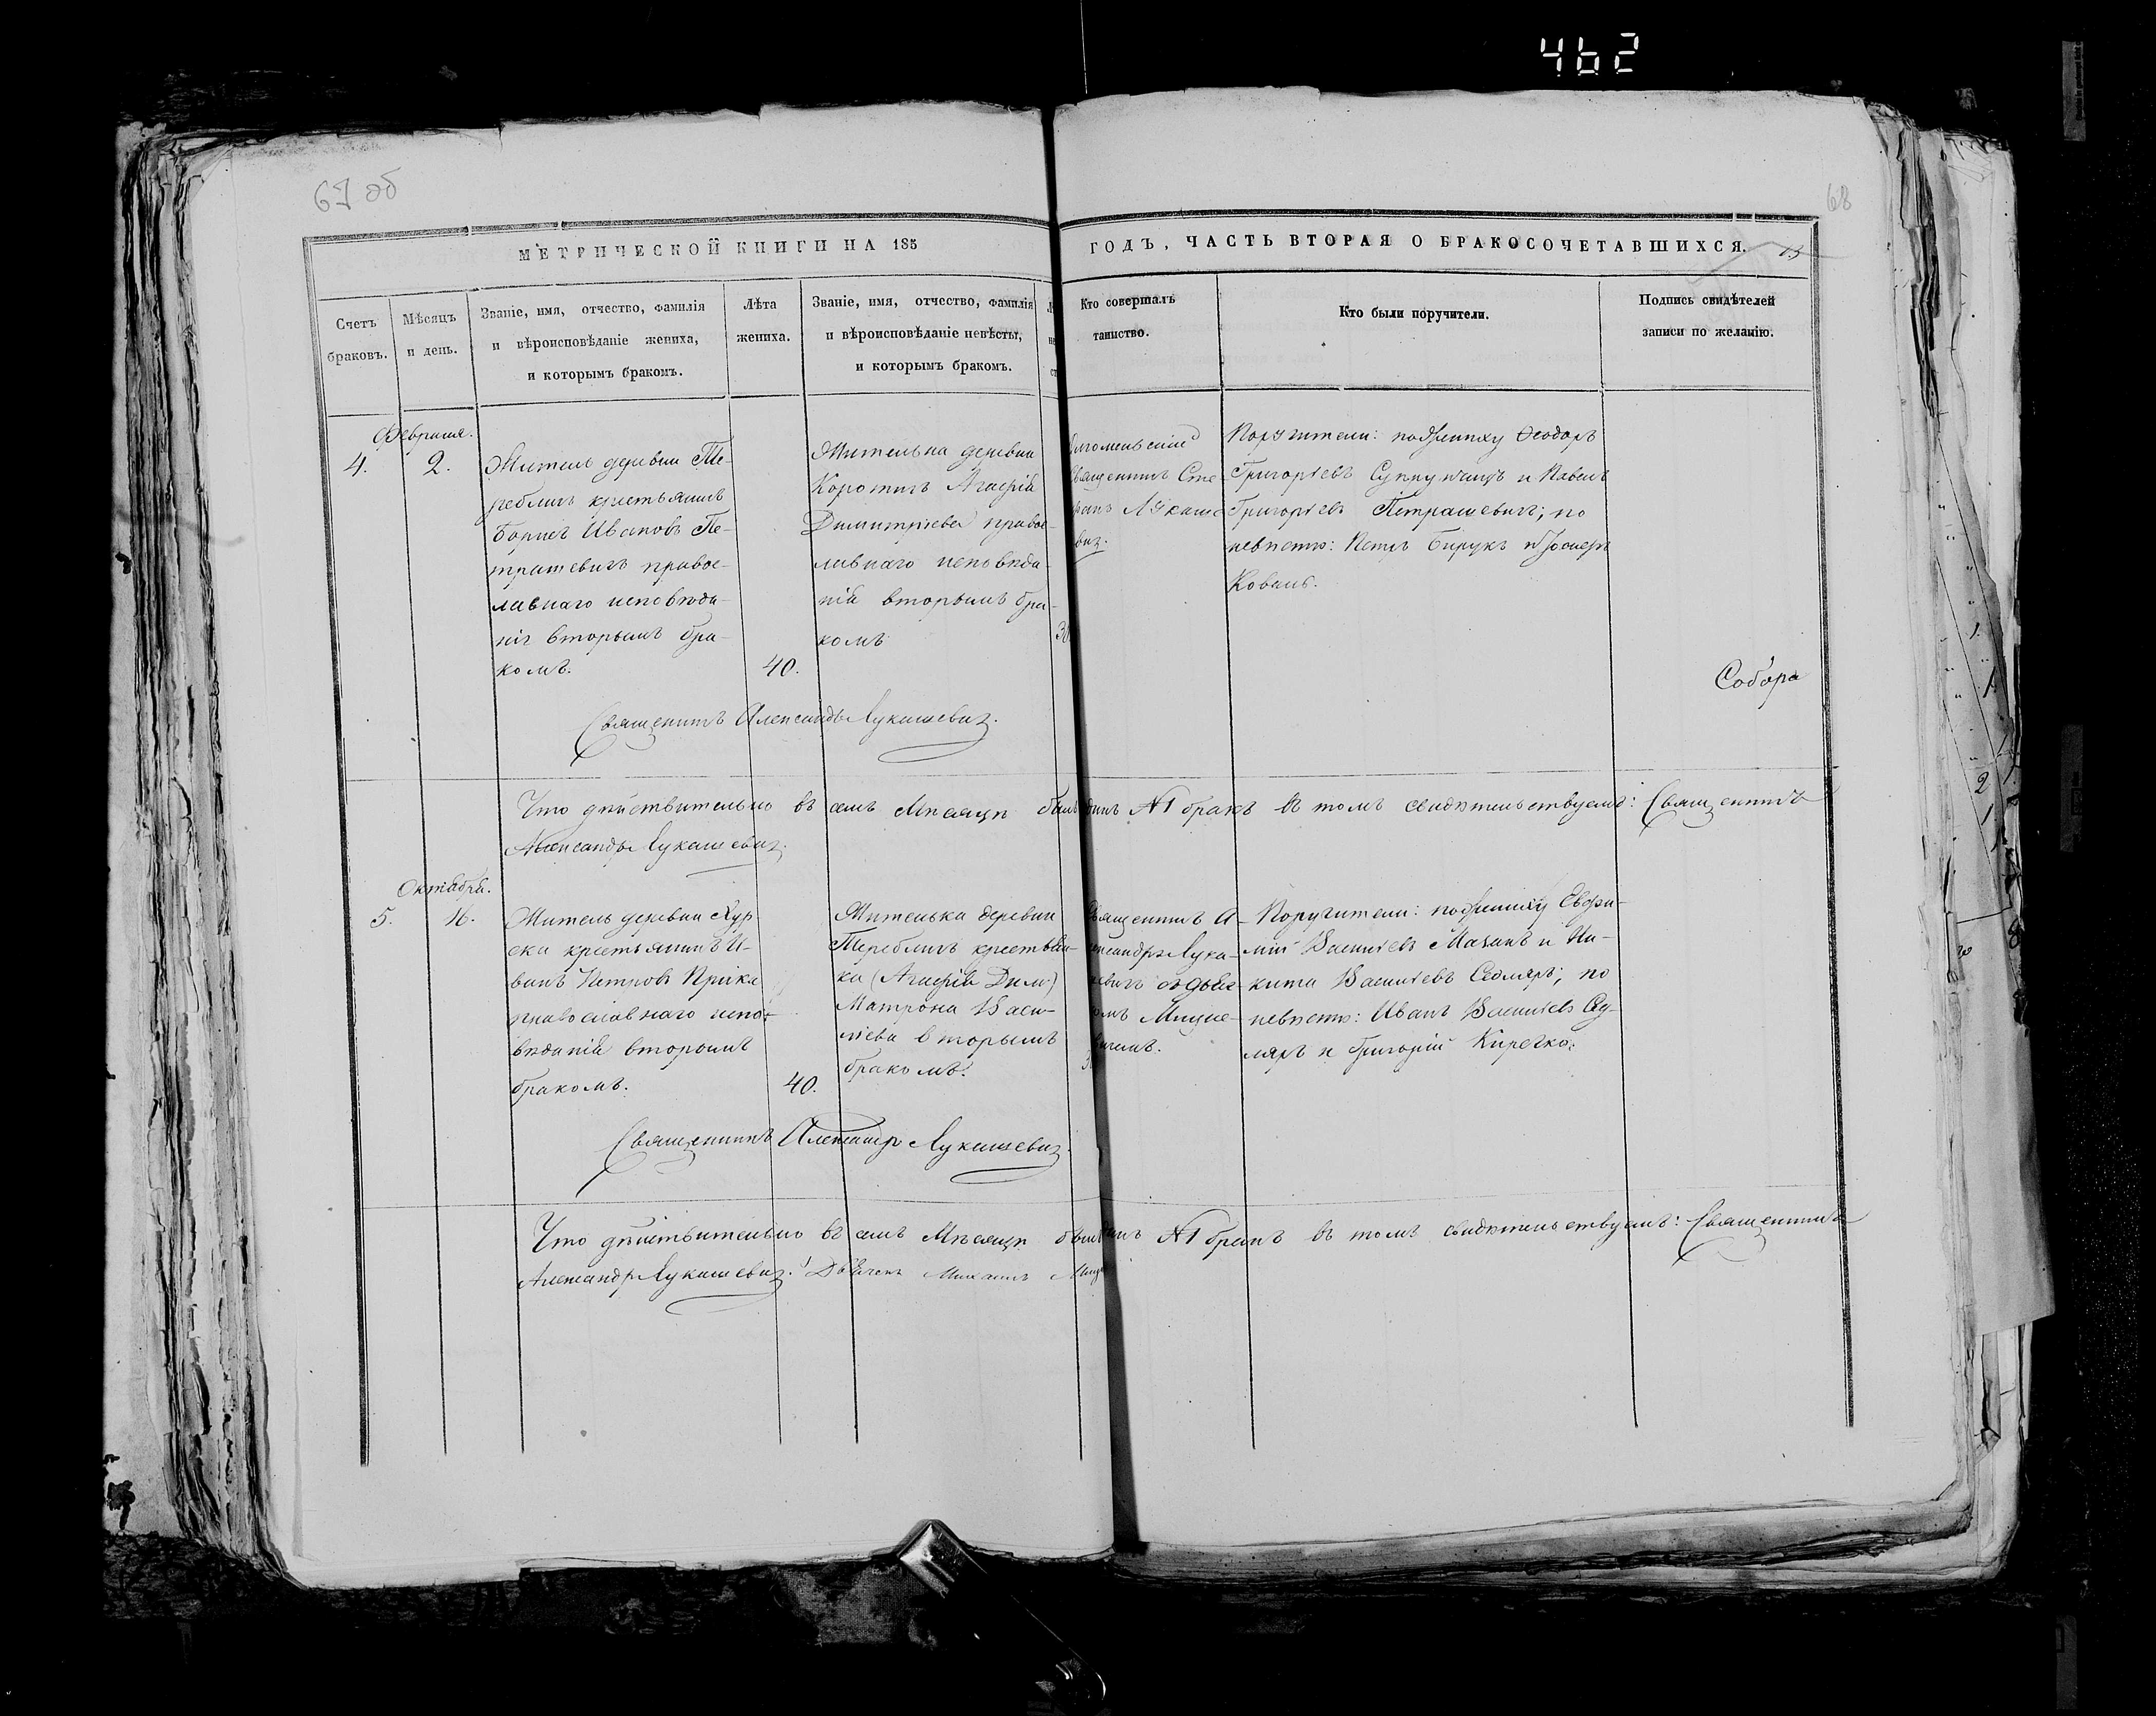 462
67 об
68
МЕТРИЧЕСКОЙ КНИГИ НА 185
ГОДЪ, ЧАСТЬ ВТОРАЯ О БРАКОСОЧЕТАВШИХСЯ.
Счетъ
браковъ.
Мѣсяцъ
и день.
Званіе, имя, отчество, фамилія
и вѣроисповѣданіе жениха,
и которымъ бракомъ.
Лѣта
жениха.
Званіе, имя, отчество, фамилія
и вѣроисповѣданіе невѣсты,
и которымъ бракомъ.
Кто совершалъ
таинство.
Кто были поручители.
Подпись свидѣтелей
записи по желанію.
Февраля.
4.
2.
Житель деревни Те-
реблич крестьянинъ
Борисъ Ивановъ Пе-
трашевичъ правос-
лавнаго исповѣда-
нія вторымъ бра-
комъ.
40.
Жителька деревни
Коротичъ Агафія
Димитріева правос-
лавнаго исповѣда-
нія вторымъ бра-
комъ
Священникъ Сте-
фанъ Лукаше
вичъ.
Поручители: по жениху Ѳеодоръ
Григоріевъ и Павелъ
Григоріевъ Петрашевичъ; по
невѣстѣ: Петръ Бирукъ и
Коваль.
Собора
Священникъ Александръ Лукашевичъ.
Что дѣйствительно въ семъ Мѣсяцѣ былъ одинъ №1 бракъ въ томъ свидѣтельствуемъ: Священникъ
Александръ Лукашевичъ.
Октября.
5.
16.
Житель деревни
крестьянинъ И-
ванъ Петровъ
православнаго испо-
вѣданія вторымъ
бракомъ.
40.
Жителька деревни
Тереблич крестьян-
ка (Агафія Дим.)
Матрона Васи-
ліева вторымъ
бракомъ.
Священникъ А-
лександръ Лука-
шевичъ съ дьяч-
комъ Мицке-
вичемъ.
Поручители: по жениху Евфи-
мій Василіевъ Мазанъ и Ни-
кита Василіевъ Столяръ; по
невѣстѣ: Иванъ Василіевъ Сто-
ляръ и Григорій Киречко.
Священникъ Александръ Лукашевичъ.
Что дѣйствительно въ семъ Мѣсяцѣ былъ одинъ №1 бракъ въ томъ свидѣтельствуемъ: Священникъ
Александръ Лукашевичъ. Дьячекъ Михаилъ